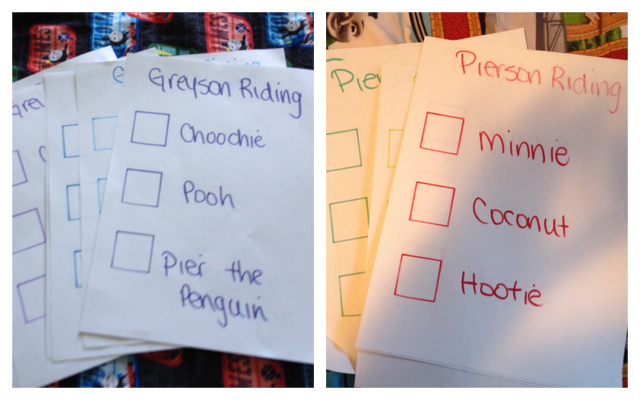 Greyson Riding
Choochie
Pooh
Pier the
Penguin
Pierson Riding
Minnie
Coconut
Hootie